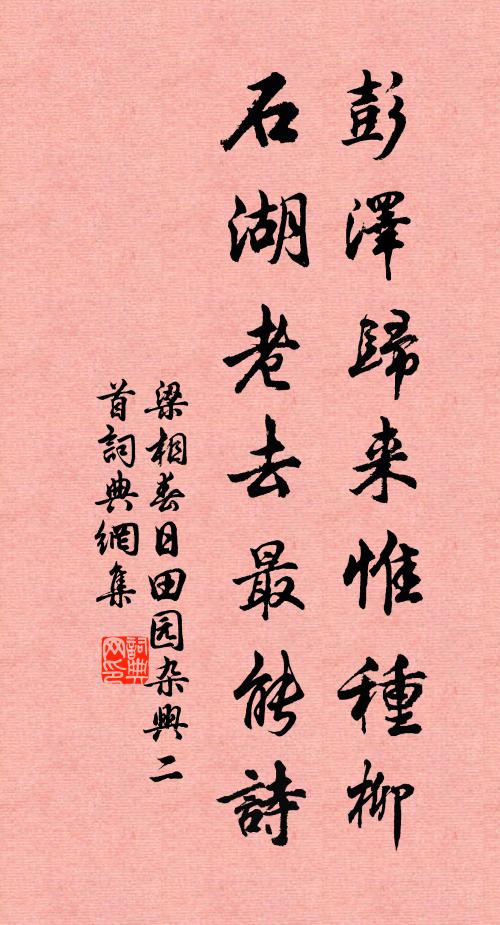 彭澤歸来惟種柳
石湖老去最能詩
梁相春日田园杂興二
首詞典網集
詞典网印